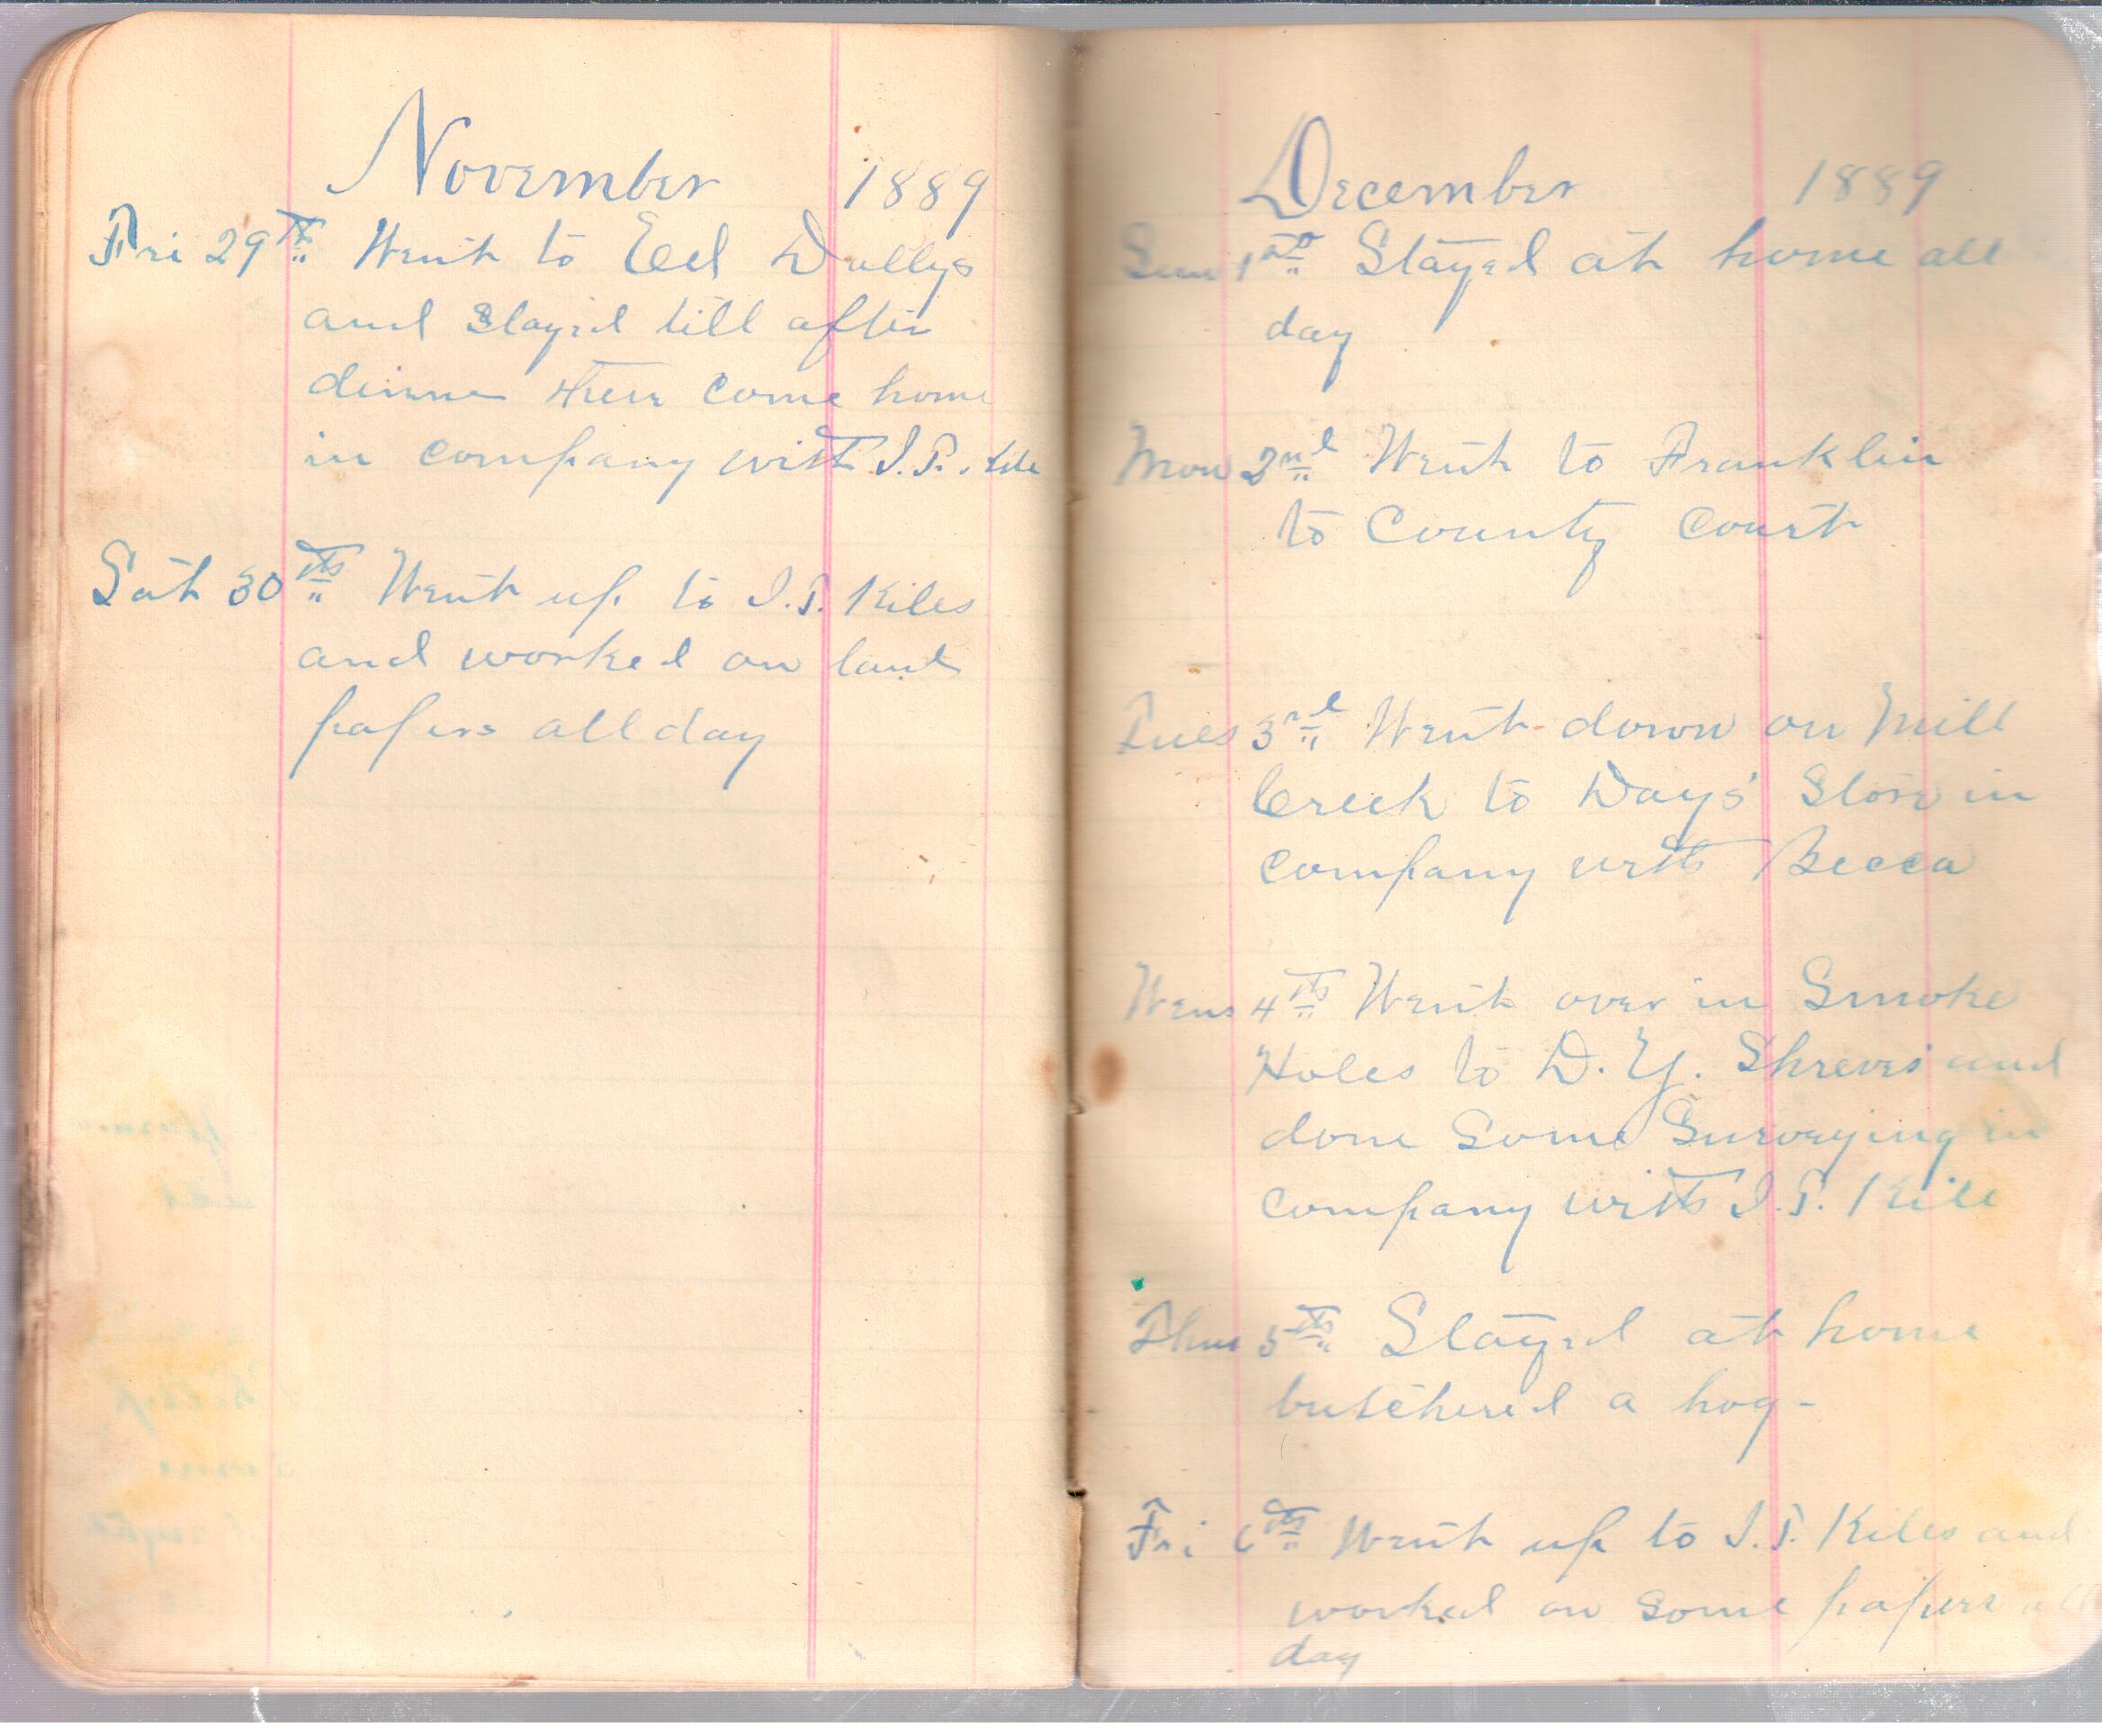 November 1889
Fri 29th Went to Ed Dollys
and Stayed till after
dinner then come home
in company with I.P.
Sat 30th Went up to I.P. Kiles
and worked on land
papers all day
December 1889
Sun 1st Stayed at home all
day
Mon 2nd Went to Franklin
to County Court
Tues 3rd Went down on Mill
Creek to Days' Store in
company with Becca
Wens 4th Went over in Smoke
Holes to D. Y. Shreves and
done Some Surveying in
company with I.P. Kile
Thus 5th Stayed at home
butchered a hog-
Fri 6th Went up to I.P. Kiles and
worked on some papers all
day